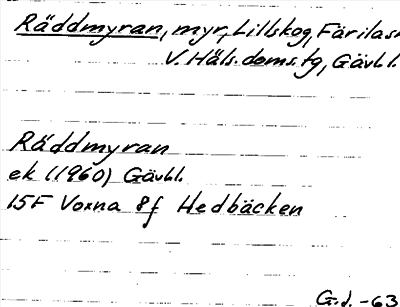 Räddmyran, myr, Lillskog, Färilas
V. Häls. doms.tg, Gävl.l.
Räddmyran
ek (1960) Gävl.l.
15F Voxna 8f Hedbäcken
G.J. -63